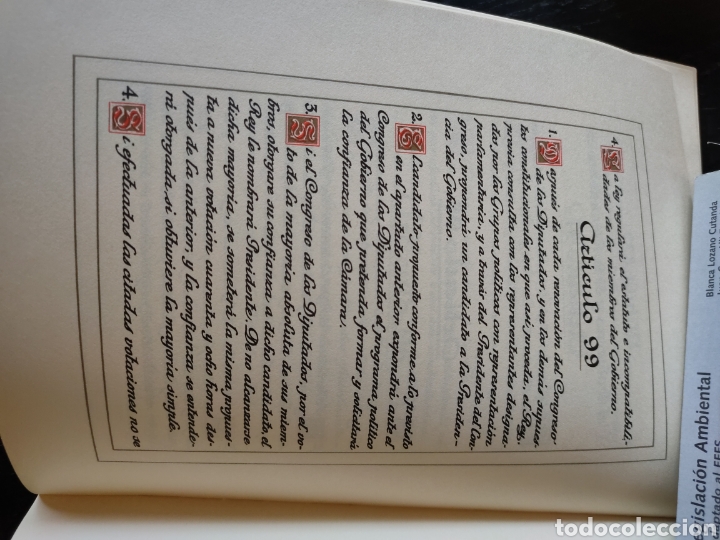 4. La ley regulará el estatuto e incompatibili-
dades de los miembros del Gobierno.
Artículo 99
1. Después de cada renovación del Congreso
de los Diputados, y en los demás supues-
tos constitucionales en que así proceda, el Rey,
previa consulta con los representantes designa-
dos por los Grupos políticos con representación
parlamentaria, y a través del Presidente del Con-
greso, propondrá un candidato a la Presiden-
cia del Gobierno.
2. El candidato propuesto conforme a lo previsto
en el apartado anterior expondrá ante el
Congreso de los Diputados el programa político
del Gobierno que pretenda formar y solicitará
la confianza de la Cámara.
3. Si el Congreso de los Diputados, por el vo-
to de la mayoría absoluta de sus miem-
bros, otorgare su confianza a dicho candidato, el
Rey le nombrará Presidente. De no alcanzarse
dicha mayoría, se someterá la misma propues-
ta a nueva votación cuarenta y ocho horas des-
pués de la anterior, y la confianza se entende-
rá otorgada si obtuviere la mayoría simple.
4. Si efectuadas las citadas votaciones no se
Blanca Lozano Cutanda
gislación Ambiental
ptado al EEES
todocoleccion.net